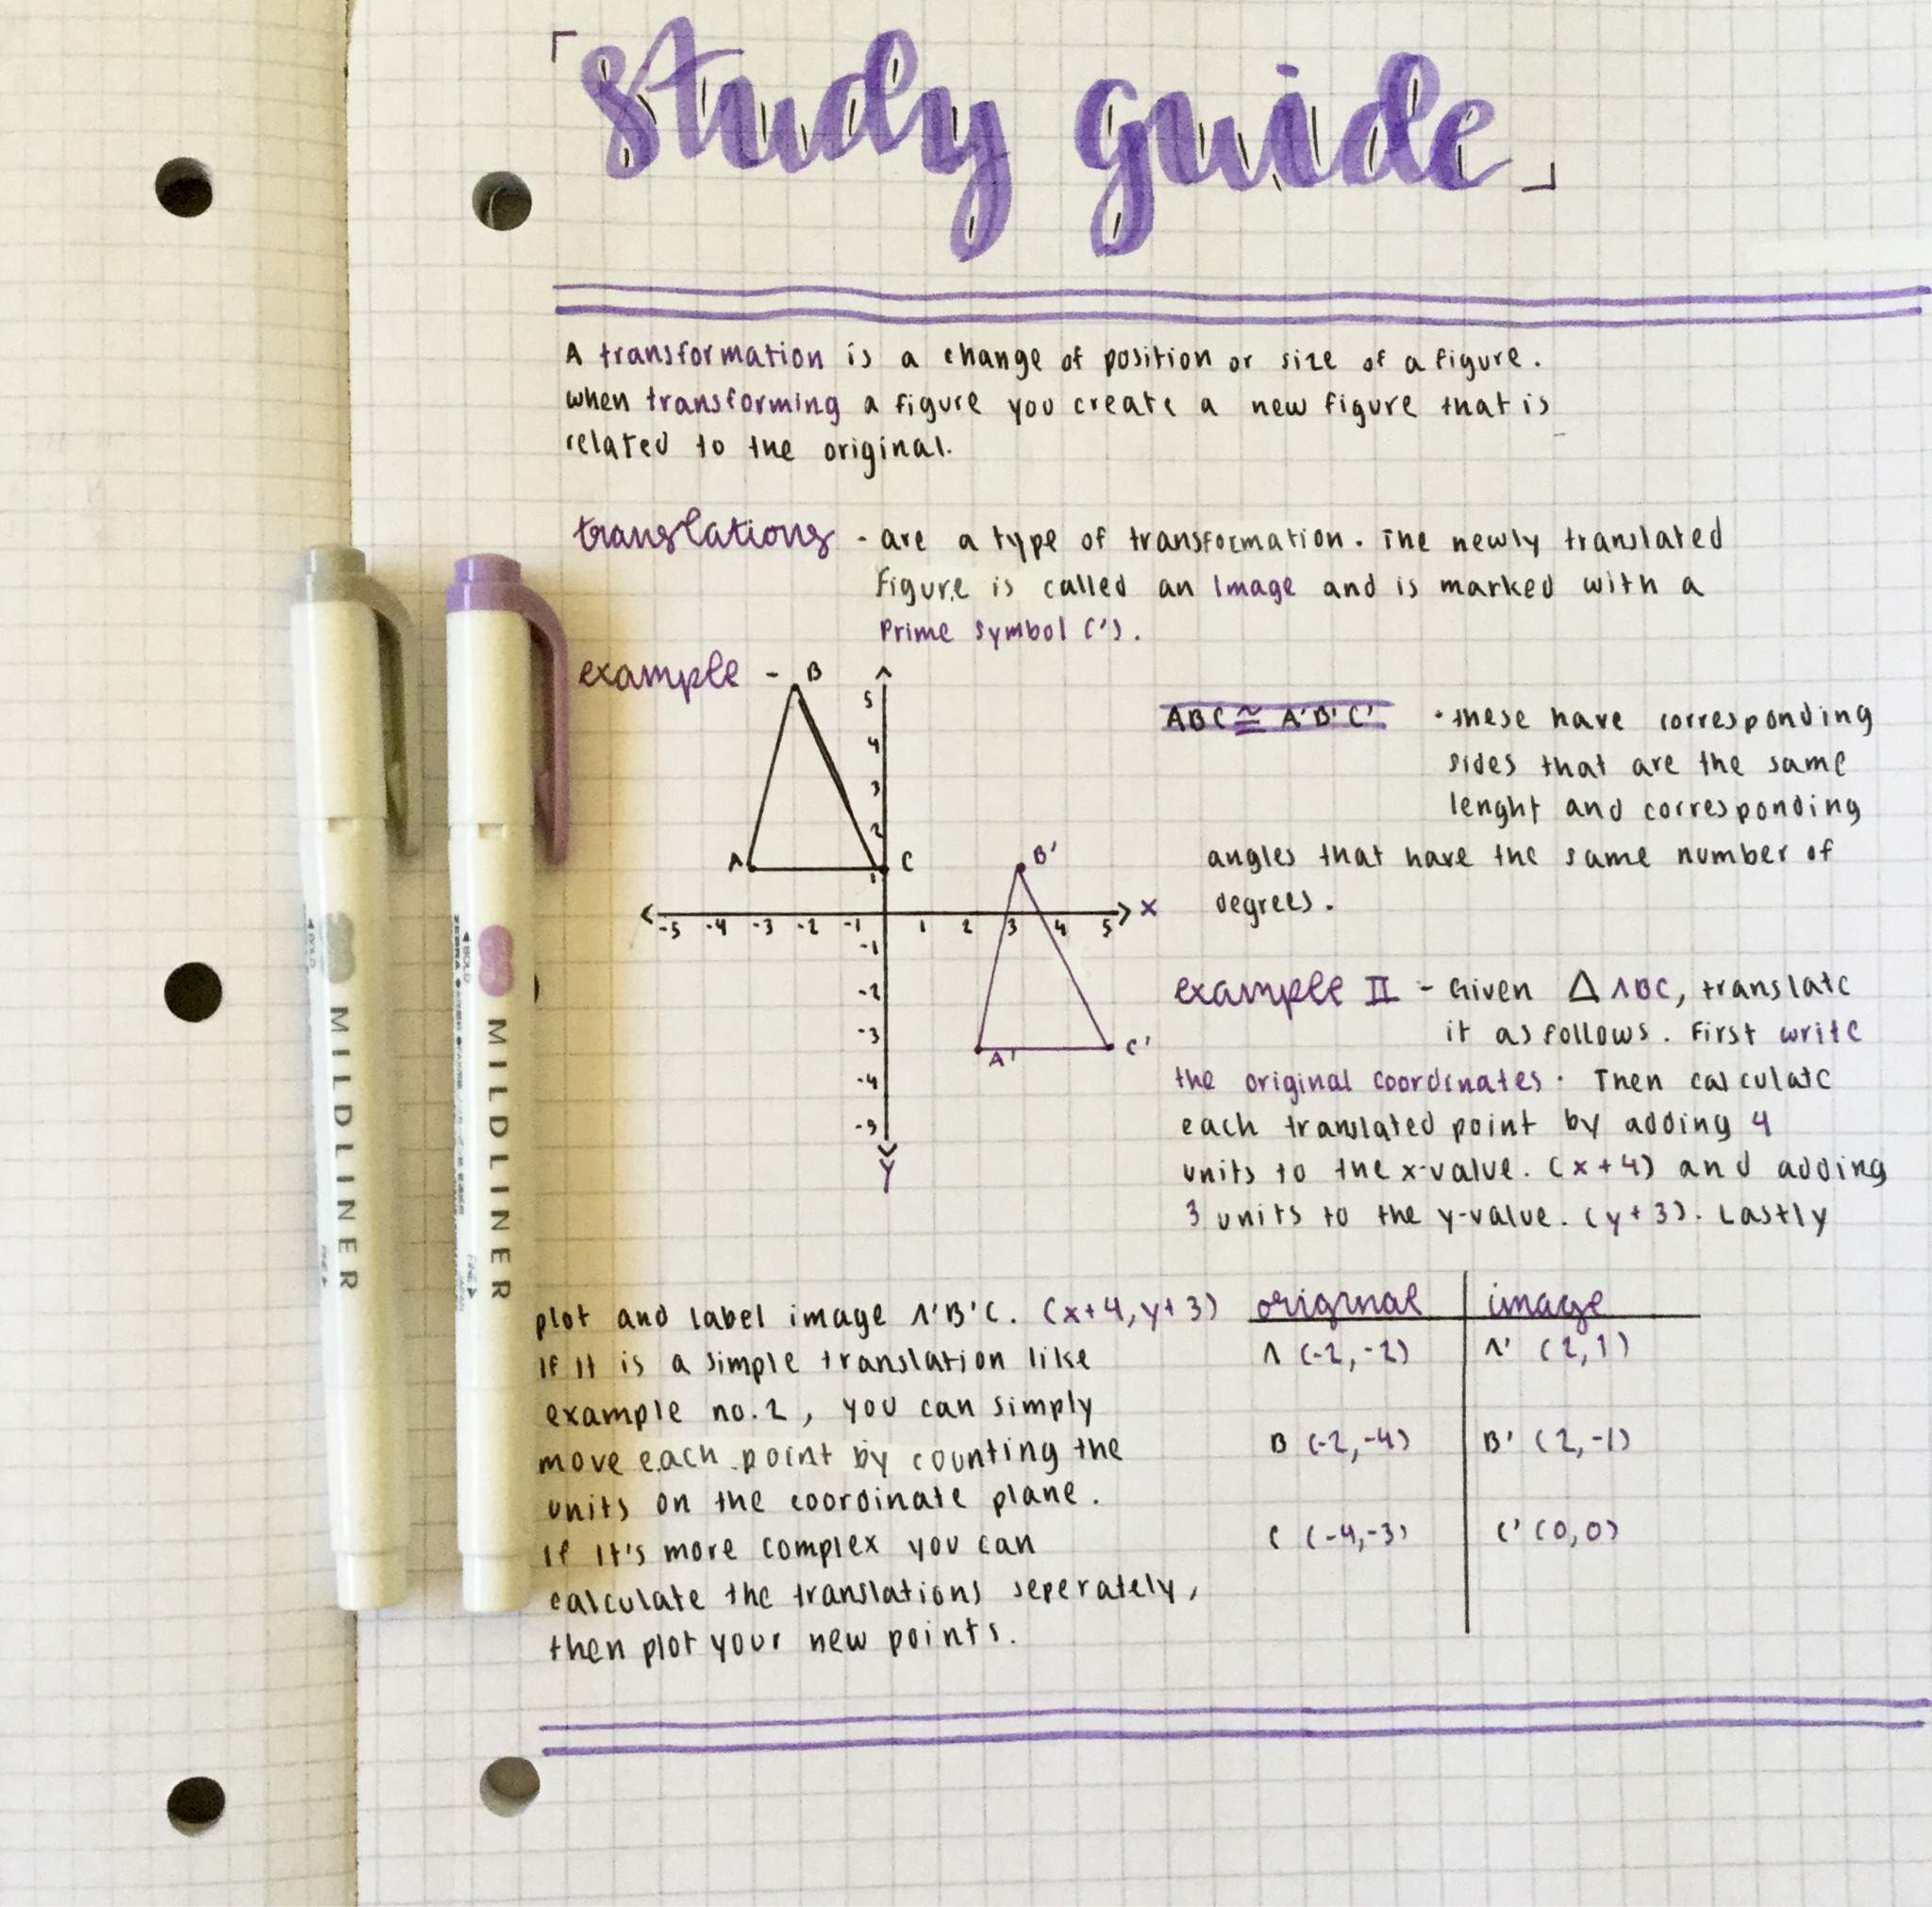 「study guide」
A transformation is a change of position or size of a figure.
when transforming a figure you create a new figure that is
related to the original.
translations - are a type of transformation. The newly translated
figure is called an Image and is marked with a
Prime symbol (').
example -
B
5
4
3
2
1
A
C
-5 -4 -3 -2 -1 1 2 3 4 5 X
-1
-2
-3
-4
-5
Y
B'
A'
C'
ABC ≅ A'B'C' · these have corresponding
sides that are the same
lenght and corresponding
angles that have the same number of
degrees.
example II - Given △ ABC, translate
it as follows. First write
the original coordinates. Then calculate
each translated point by adding 4
units to the x-value. (x+4) and adding
3 units to the y-value. (y+3). Lastly
plot and label image A'B'C. (x+4, y+3)
If it is a simple translation like
example no.2, you can simply
move each point by counting the
units on the coordinate plane.
If it's more complex you can
calculate the translations seperately,
then plot your new points.
original image
A (-2,-2) A' (2,1)
B (-2,-4) B' (2,-1)
C (-4,-3) C' (0,0)
◄BOLD
MILDLINER
◄BOLD
ZEBRA
MILDLINER
FINE►